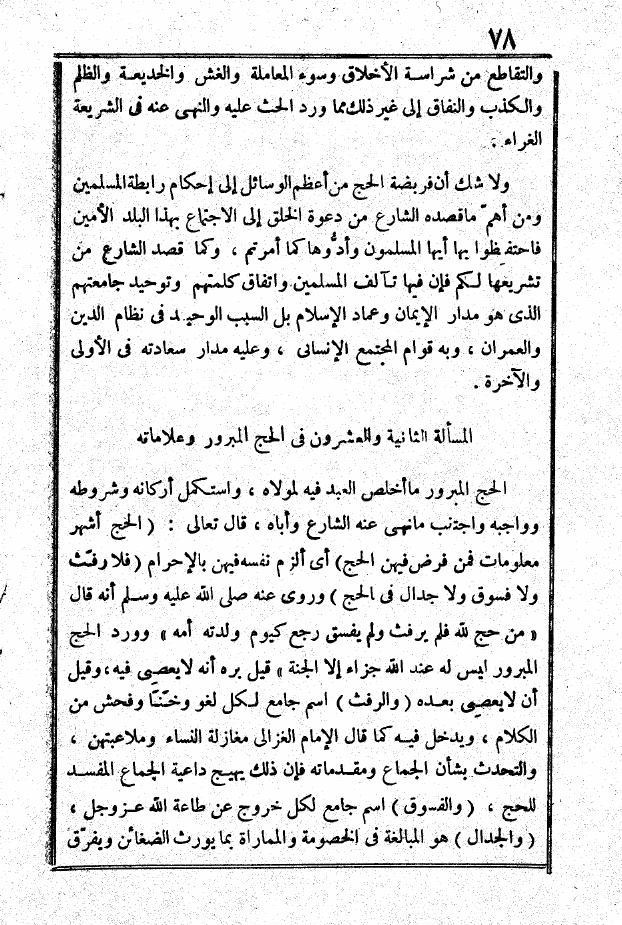 ٧٨
والتقاطع من شراسة الأخلاق وسوء المعاملة والغش والخديعة والظلم
والكذب والنفاق إلى غير ذلك مما ورد الحث عليه والنهى عنه فى الشريعة
الغراء .
ولا شك أن فريضة الحج من أعظم الوسائل إلى إحكام رابطة المسلمين
ومن أهمّ ماقصده الشارع من دعوة الخلق إلى الاجتماع بهذا البلد الأمين
فاحتفظوا بها أيها المسلمون وأدُّوها كما أمرتم ، وكما قصد الشارع من
تشريعها لكم فإن فيها تآلف المسلمين واتفاق كلمتهم وتوحيد جامعتهم
الذى هو مدار الإيمان وعماد الإسلام بل السبب الوحيد فى نظام الدين
والعمران ، وبه قوام المجتمع الإنسانى ، وعليه مدار سعادته فى الأولى
والآخرة .
المسألة الثانية والعشرون فى الحج المبرور وعلاماته
الحج المبرور ماأخلص العبد فيه لمولاه ، واستكمل أركانه وشروطه
وواجبه واجتنب مانهى عنه الشارع وأباه ، قال تعالى : ( الحج أشهر
معلومات فمن فرض فيهن الحج) أى ألزم نفسه فيهن بالإحرام (فلا رفث
ولا فسوق ولا جدال فى الحج ) وروى عنه صلى الله عليه وسلم أنه قال
« من حج لله فلم يرفث ولم يفسق رجع كيوم ولدته أمه » وورد الحج
المبرور ليس له عند الله جزاء إلا الجنة » قيل بره أنه لايعصى فيه، وقيل
أن لايعصى بعده ( والرفث ) اسم جامع لكل لغو وخنًنا وفحش من
الكلام ، ويدخل فيه كما قال الإمام الغزالى مغازلة النساء وملاعبتهن ،
والتحدث بشأن الجماع ومقدماته فإن ذلك يهيج داعية الجماع المفسد
للحج ، ( والفسوق ) اسم جامع لكل خروج عن طاعة الله عز وجل ،
( والجدال ) هو المبالغة فى الخصومة والمماراة بما يورث الضغائن ويفرّق